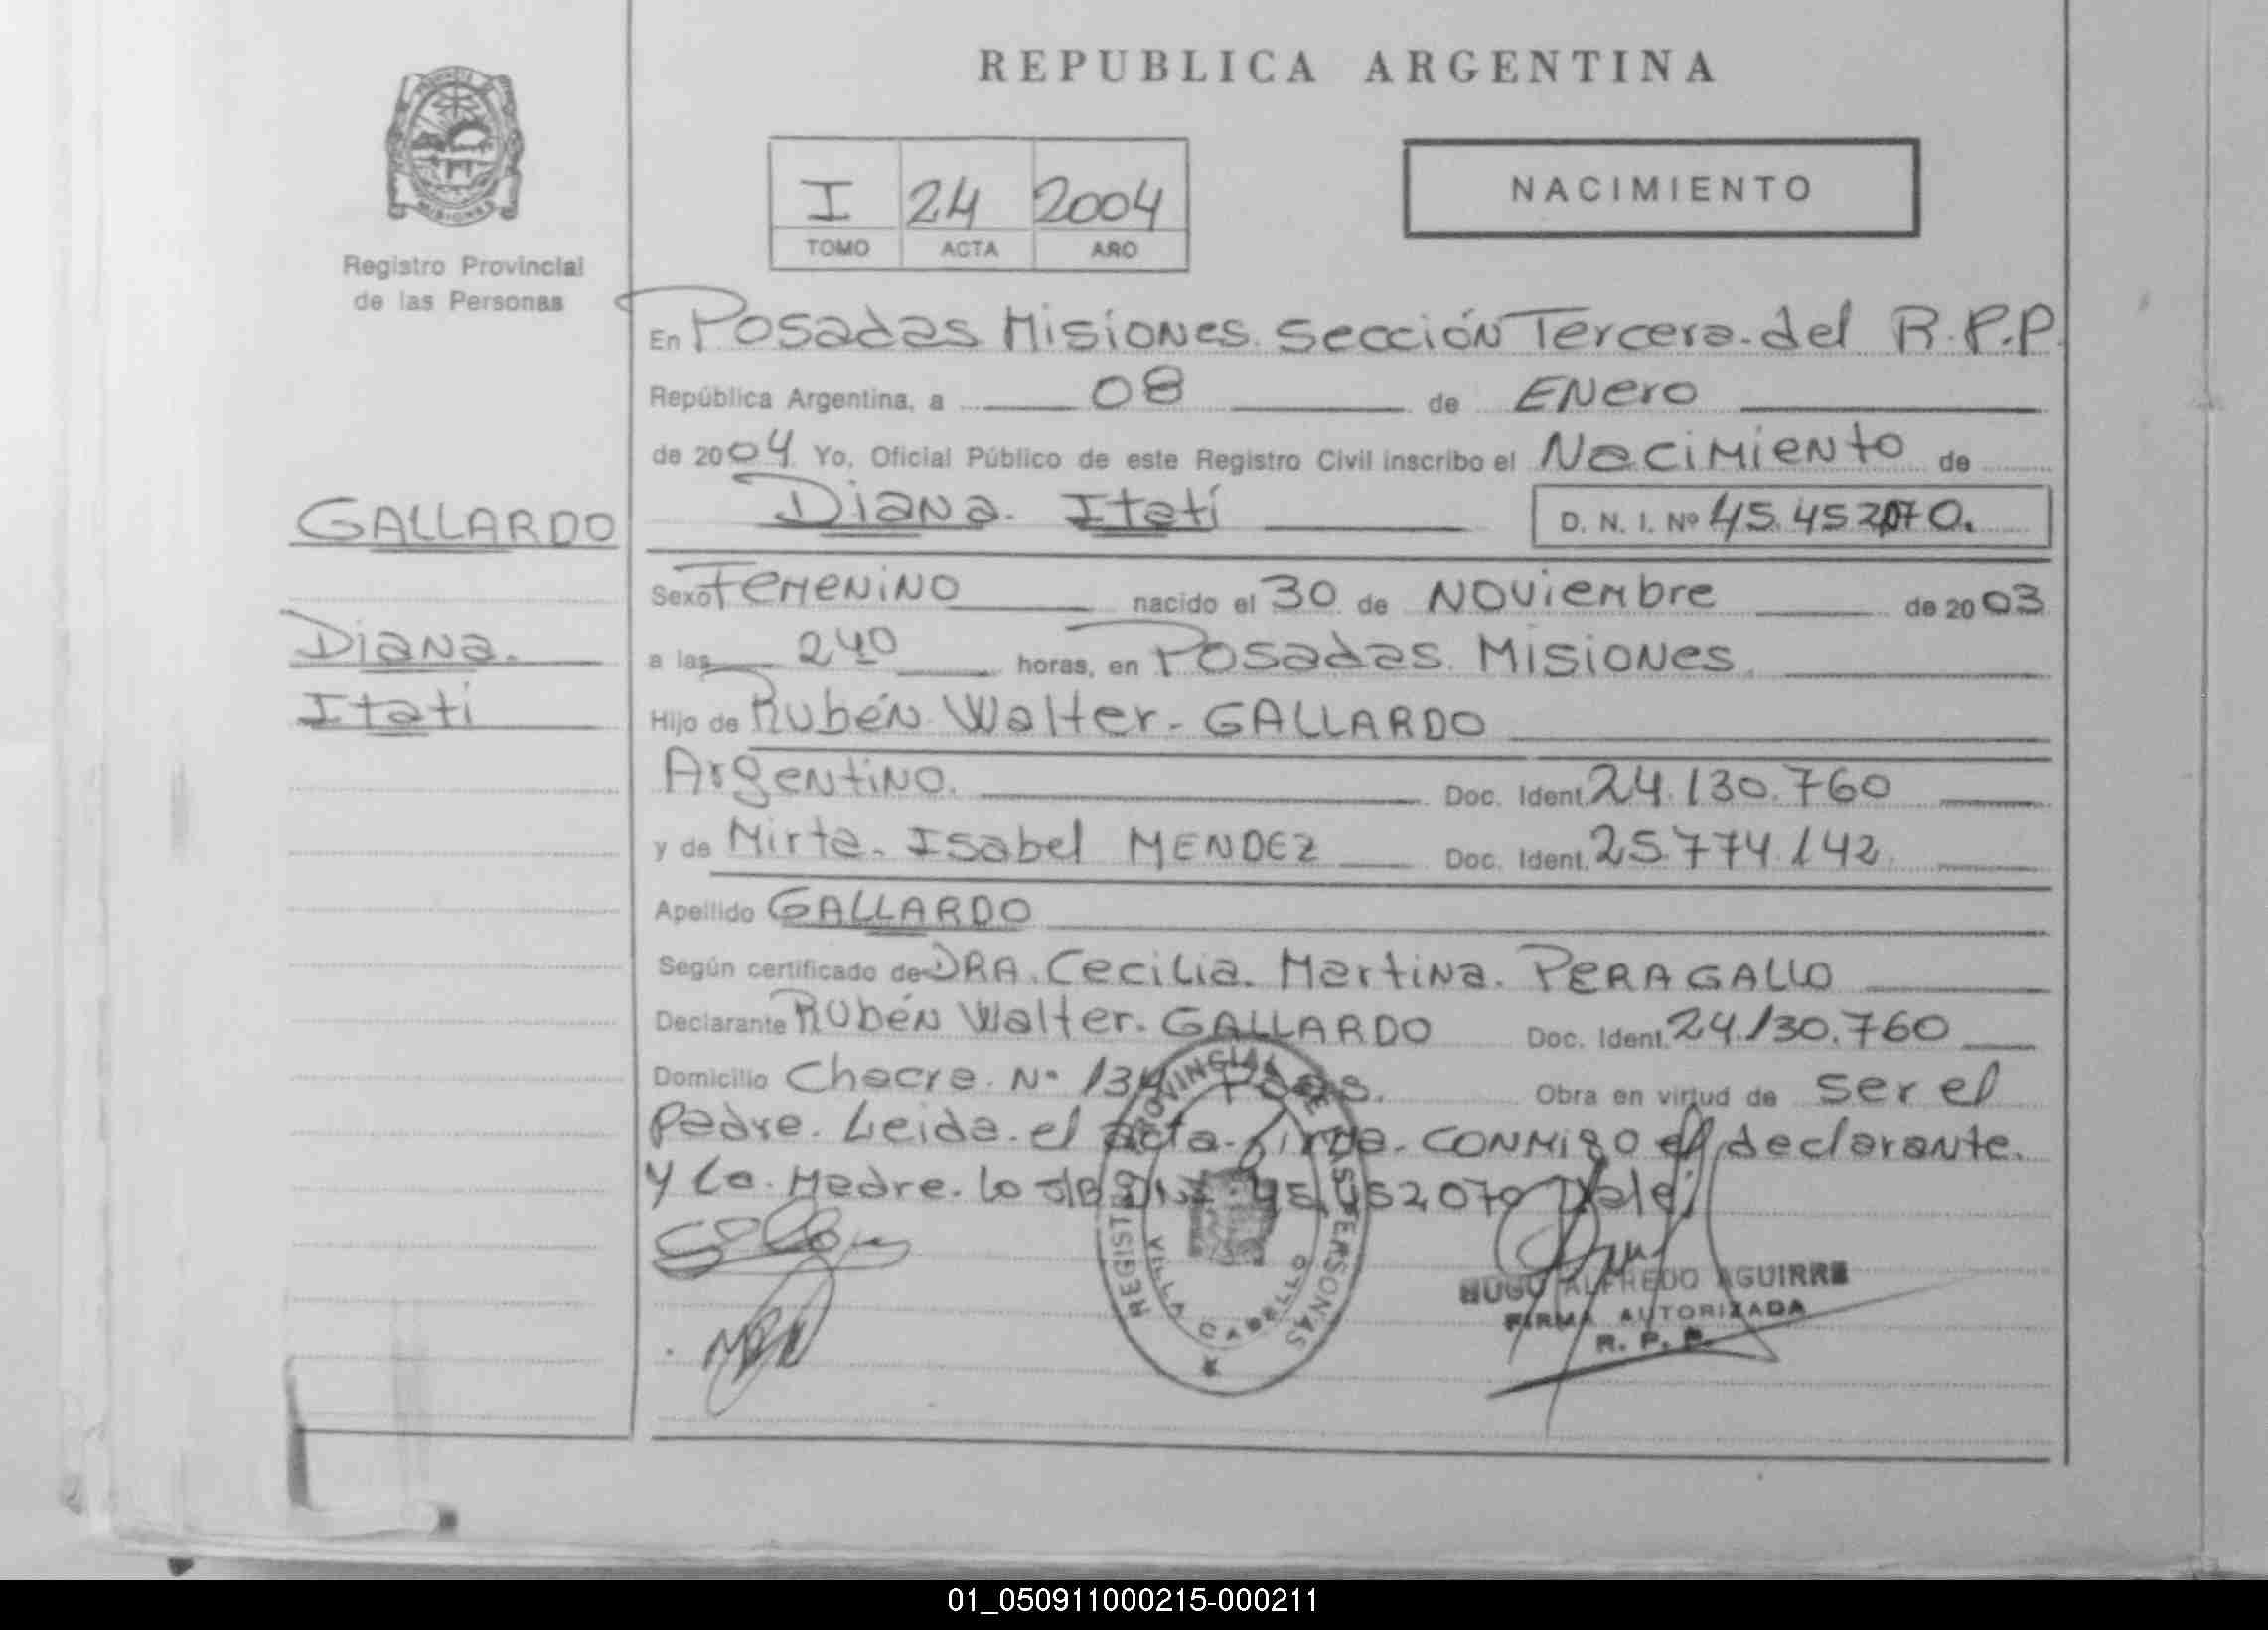 REPUBLICA ARGENTINA
PROVINCIA
MISIONES
Registro Provincial
de las Personas
I 24 2004
TOMO ACTA AÑO
NACIMIENTO
En Posadas Misiones. Sección Tercera del R.P.P.
República Argentina, a 08 de Enero
de 2004 Yo, Oficial Público de este Registro Civil inscribo el Nacimiento de
Diana Itatí D. N. I. Nº 45.452.070.
GALLARDO
Diana
Itatí
Sexo Femenino nacido el 30 de Noviembre de 2003
a las 2 40 horas, en Posadas Misiones
Hijo de Rubén Walter GALLARDO
Argentino. Doc. Ident. 24.130.760
y de Mirta Isabel MENDEZ Doc. Ident. 25.774.142
Apellido GALLARDO
Según certificado de DRA. Cecilia Martina PERAGALLO
Declarante Rubén Walter GALLARDO Doc. Ident. 24.130.760
Domicilio Chacra Nº 134 Pdas. Obra en virtud de ser el
Padre. Leida el acta firma conmigo el declarante
y la Madre. lo S/B 45.452070 Vale
REGISTRO PROVINCIAL DE LAS PERSONAS
VILLA CABELLO
HUGO ALFREDO AGUIRRE
FIRMA AUTORIZADA
R. P. P.
01_050911000215-000211